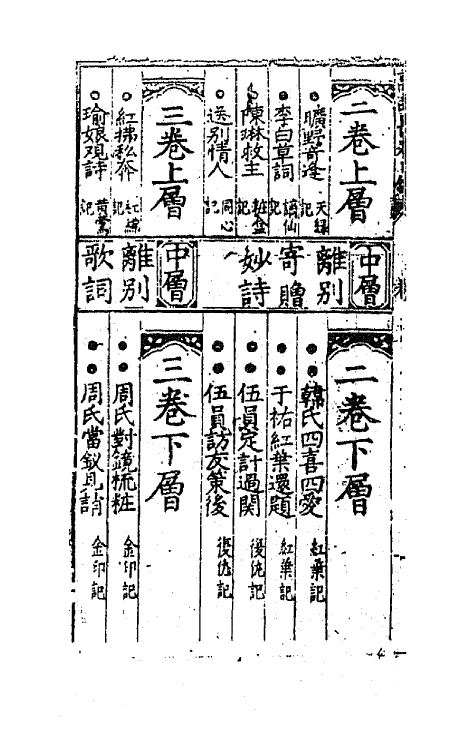 二卷上層
曠野奇逢 天緣記
李白草詞 謫仙記
陳琳救主 粧盒記
送別情人 同心記
三卷上層
紅拂私奔 紅綿記
瑜娘觀詩 黃鶯記
中層
離別
寄贈
妙詩
中層
離別
歌詞
二卷下層
韓氏四喜四愛 紅葉記
于祐紅葉還題 紅葉記
伍員定計過関 復仇記
伍員訪友策後 復仇記
三卷下層
周氏對鏡梳粧 金印記
周氏當釵見誚 金印記